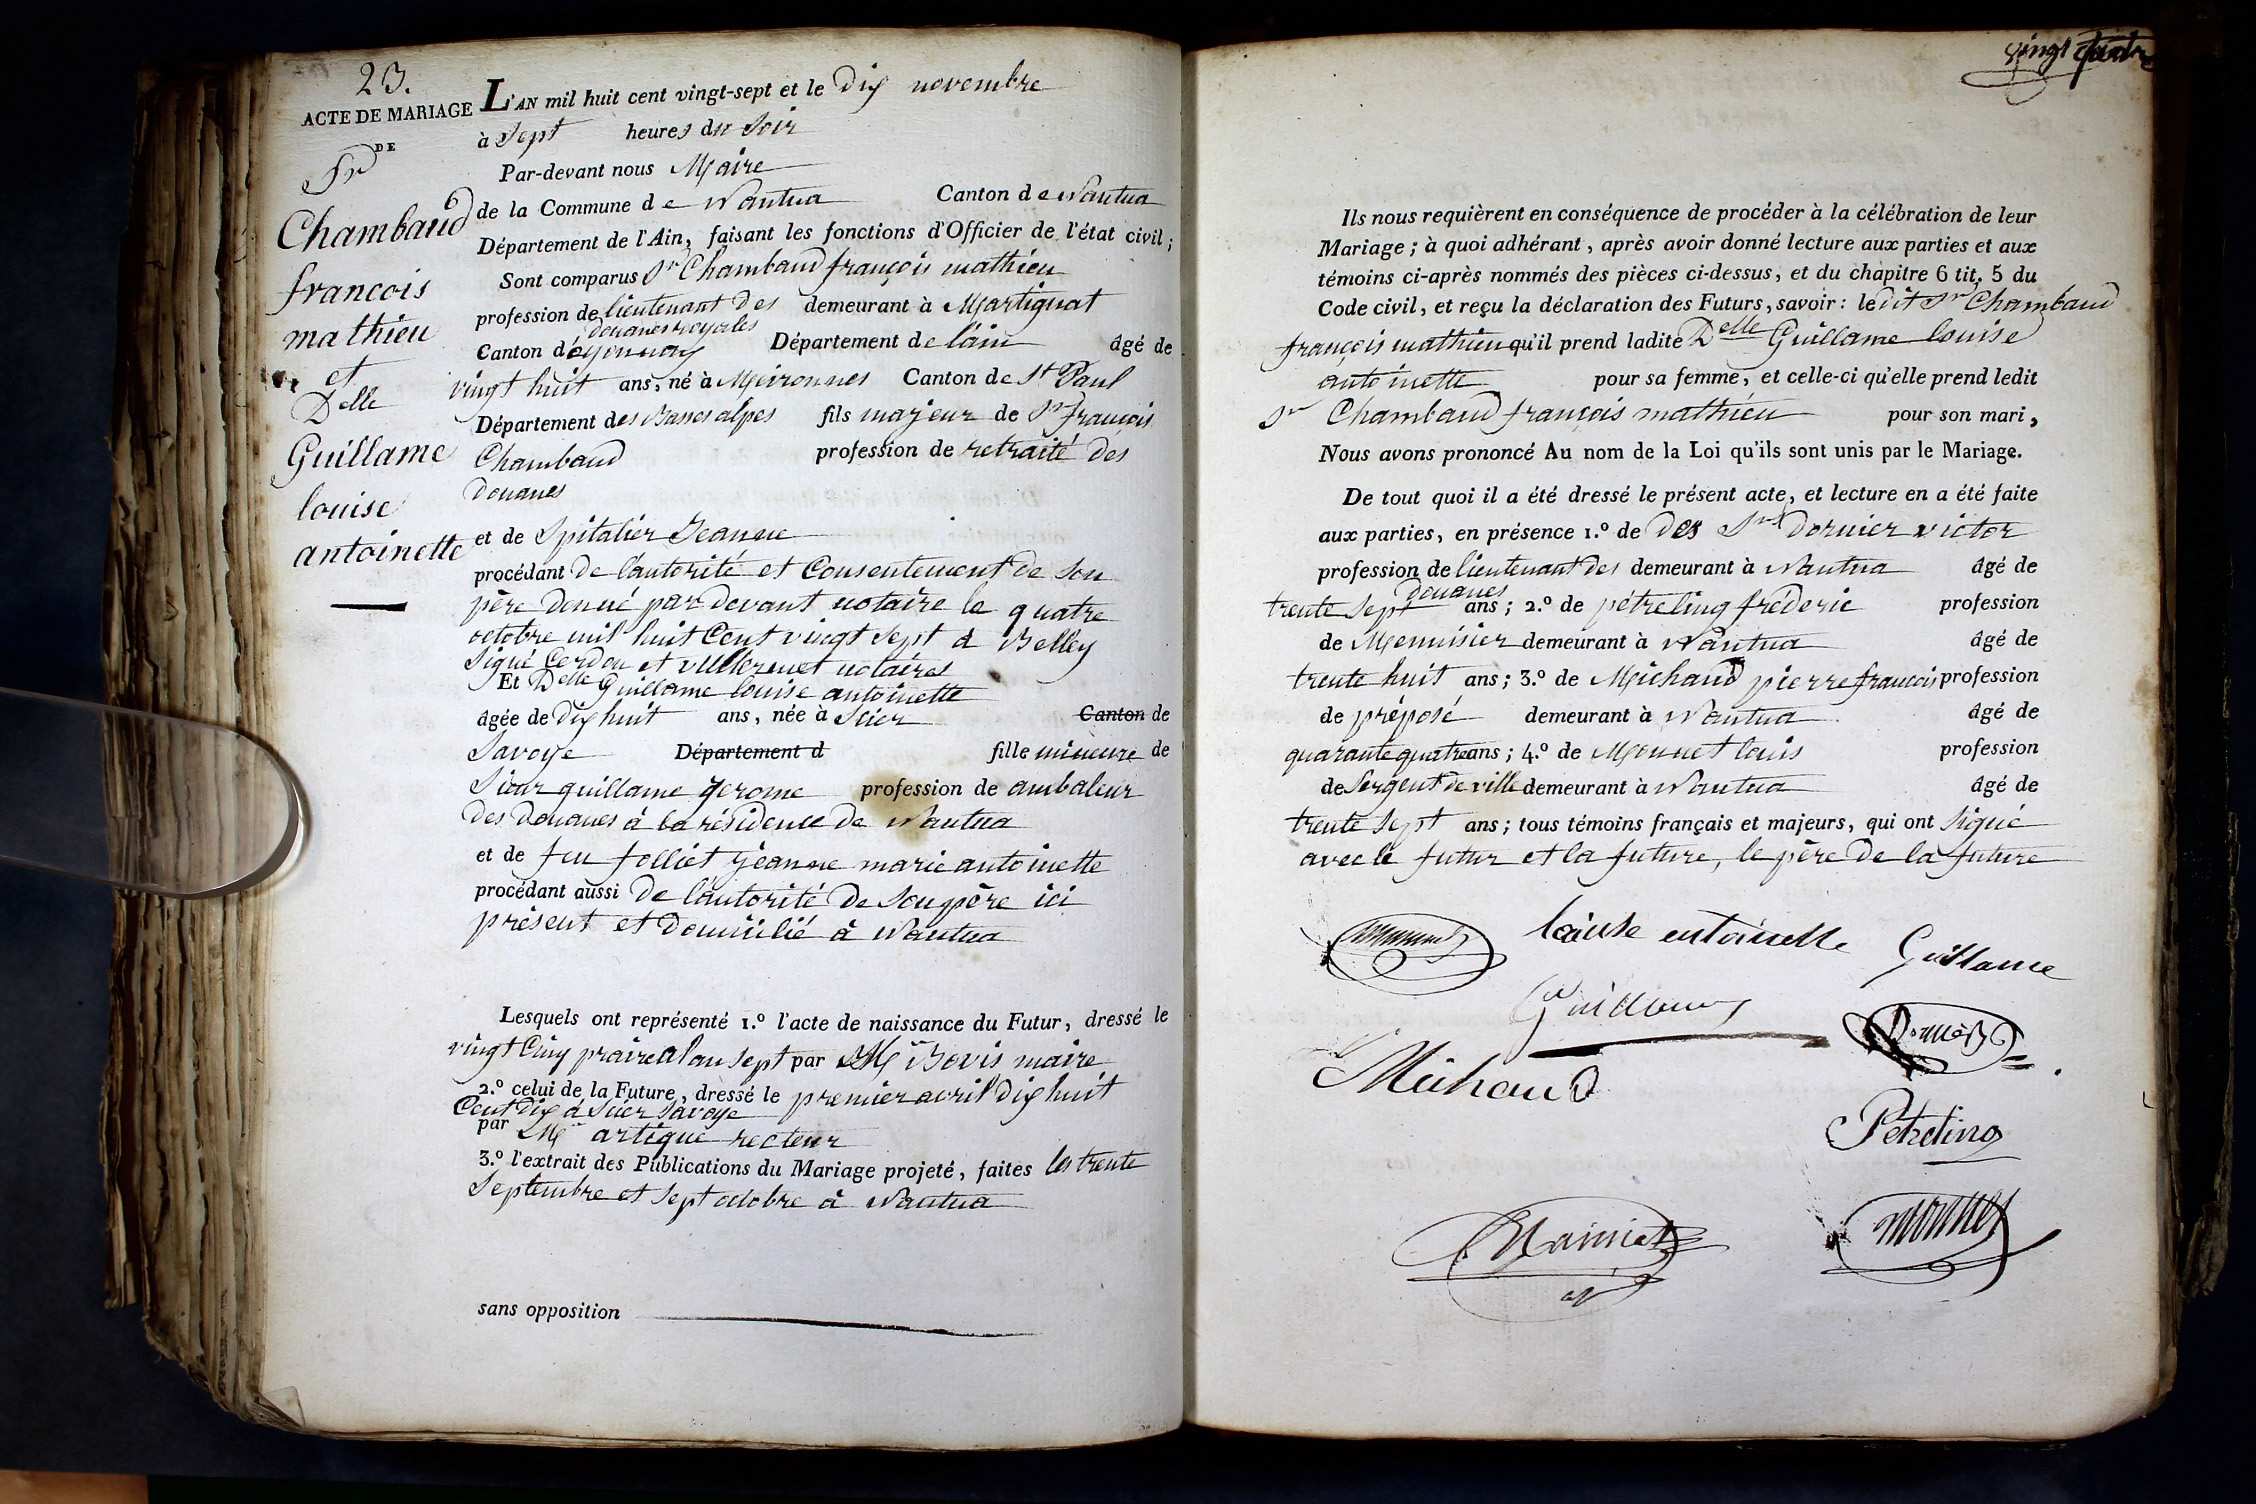 23.
ACTE DE MARIAGE
DE
Sr
Chambaud
françois
mathieu
et
Delle
Guillame
louise
antoinette
L'AN mil huit cent vingt-sept et le dix novembre
à Sept heures du Soir
Par-devant nous Maire
de la Commune de Nantua Canton de Nantua
Département de l'Ain, faisant les fonctions d'Officier de l'état civil;
Sont comparus Sr Chambaud françois mathieu
profession de lieutenant des demeurant à Martignat
douanes royales
Canton d'oyonnax Département de l'ain âgé de
vingt huit ans, né à Meironnes Canton de St Paul
Département des Basses alpes fils majeur de Sr françois
Chambaud profession de retraité des
douanes
et de Spitalier Jeanne
procédant de l'autorité et Consentement de Son
père donné par devant notaire le quatre
octobre mil huit Cent vingt Sept à Belley
Signé Cerdon et notaires
Et Delle Guillame louise antoinette
âgée de dix huit ans, née à Scier Canton de
Savoye Département d fille mineure de
Sieur guillame gerome profession de ambaleur
des douanes à la résidence de Nantua
et de feu folliet jeanne marie antoinette
procédant aussi de l'autorité de Son père ici
présent et domicilié à Nantua
Lesquels ont représenté 1.º l'acte de naissance du Futur, dressé le
vingt Cinq prairéal an Sept par Mr Bovis maire
2.º celui de la Future, dressé le premier avril dix huit
Cent dix à Scier Savoye
par Mr artique recteur
3.º l'extrait des Publications du Mariage projeté, faites les trente
Septembre et Sept octobre à Nantua
sans opposition
vingt quatre
Ils nous requièrent en conséquence de procéder à la célébration de leur
Mariage; à quoi adhérant, après avoir donné lecture aux parties et aux
témoins ci-après nommés des pièces ci-dessus, et du chapitre 6 tit. 5 du
Code civil, et reçu la déclaration des Futurs, savoir: le dit Sr Chambaud
françois mathieu qu'il prend ladite Delle Guillame louise
antoinette pour sa femme, et celle-ci qu'elle prend ledit
Sr Chambaud françois mathieu pour son mari,
Nous avons prononcé Au nom de la Loi qu'ils sont unis par le Mariage.
De tout quoi il a été dressé le présent acte, et lecture en a été faite
aux parties, en présence 1.º de des Srs dornier victor
profession de lieutenant des demeurant à Nantua âgé de
douanes
trente Sept ans; 2.º de pétreling fréderic profession
de Menuisier demeurant à Nantua âgé de
trente huit ans; 3.º de Michaud pierre françois profession
de préposé demeurant à Nantua âgé de
quarante quatre ans; 4.º de Monnet louis profession
de Sergent de ville demeurant à Nantua âgé de
trente Sept ans; tous témoins français et majeurs, qui ont Signé
avec le futur et la future, le père de la future
louise entoinette Guillame
Guillame
Michaud
Petreling
monnet